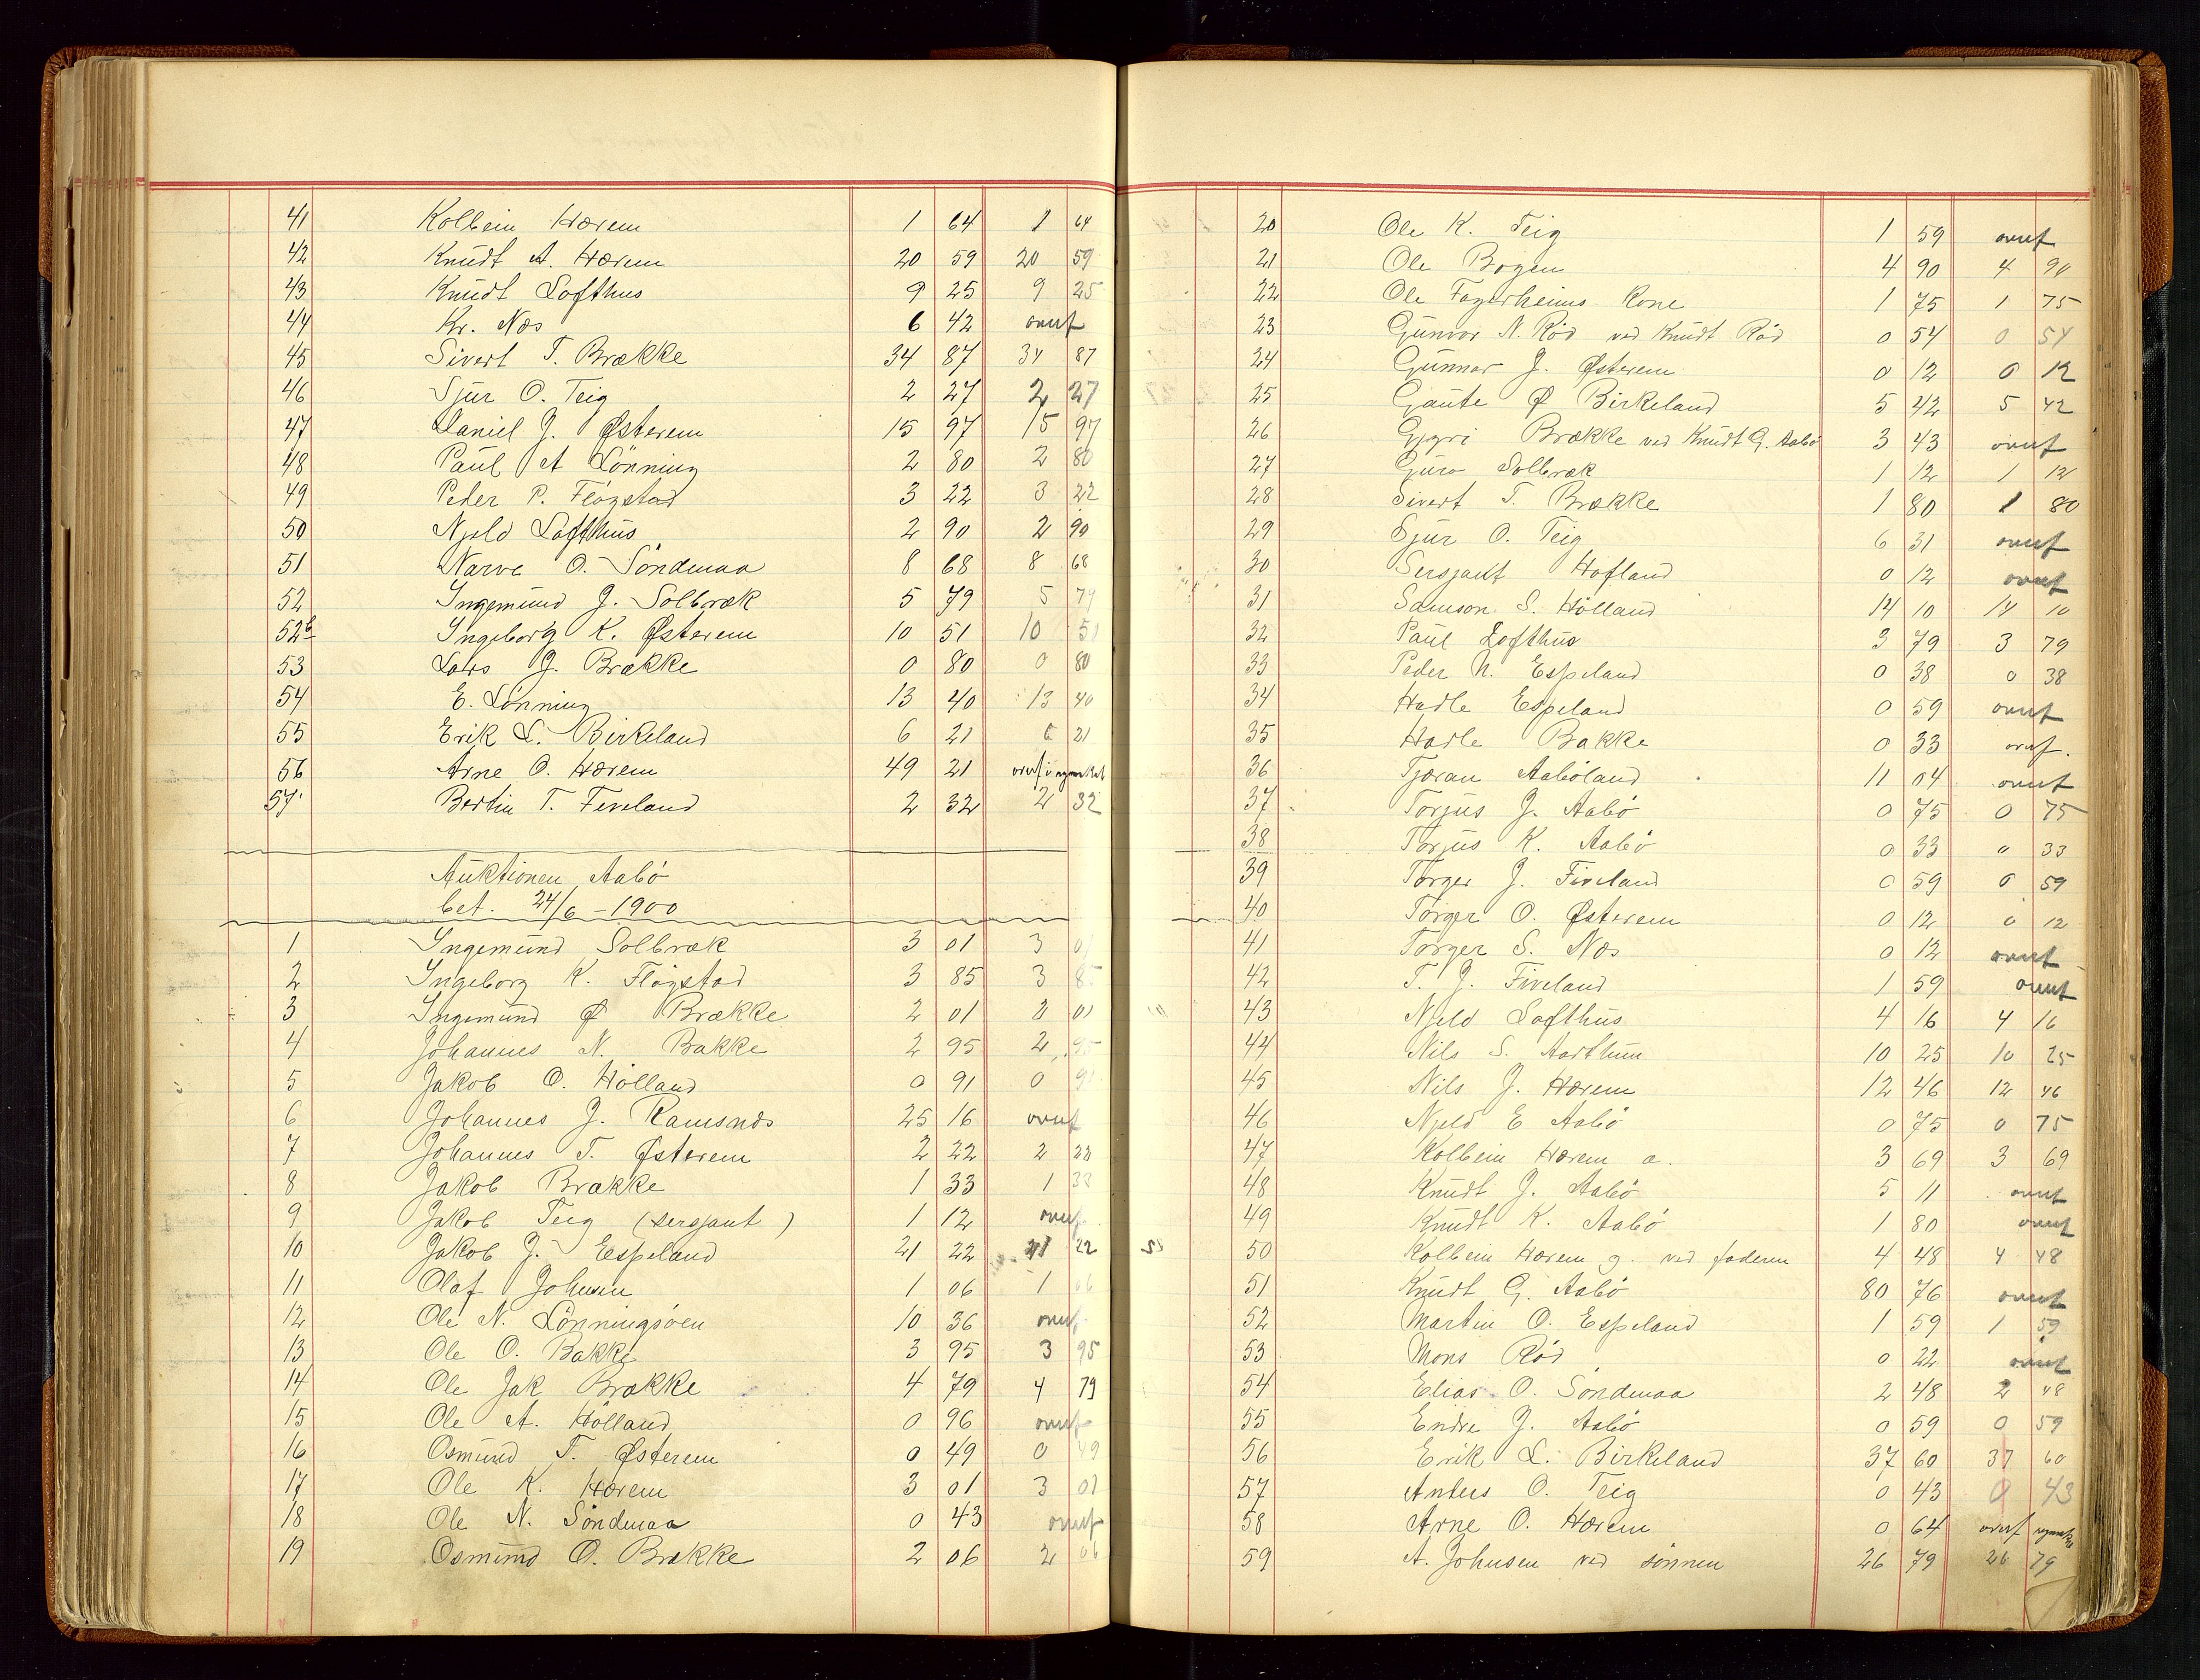 41 Kolbein Hærem 1 64 1 64
42 Knudt A. Hærem 20 59 20 59
43 Knudt Lofthus 9 25 9 25
44 Kr. Næs 6 42 overf
45 Sivert T. Brække 34 87 34 87
46 Sjur O. Teig 2 27 2 27
47 Daniel J. Østerem 15 97 15 97
48 Paul A Lönning 2 80 2 80
49 Peder P. Flögstad 3 22 3 22
50 Njeld Lofthus 2 90 2 90
51 Narve O. Söndenaa 8 68 8 68
52 Ingemund J. Solbræk 5 79 5 79
52b Ingeborg K. Østerem 10 51 10 51
53 Lars J. Brække 0 80 0 80
54 E. Lönning 13 40 13 40
55 Erik L. Birkeland 6 21 6 21
56 Arne O. Hærem 49 21 overf
57 Bertin T. Feveland 2 32 2 32
Auktionen Aabö
bet. 24/6 - 1900
1 Ingemund Solbræk 3 01 3 01
2 Ingeborg K. Flögstad 3 85 3 85
3 Ingemund Ø Brække 2 01 2 01
4 Johannes N. Bakke 2 95 2 95
5 Jakob O. Hölland 0 91 0 91
6 Johannes J. Ramsnæs 25 16 overf
7 Johannes T. Østerem 2 22 2 22
8 Jakob Brække 1 33 1 33
9 Jakob Teig (sersjant) 1 12 overf
10 Jakob J. Espeland 21 22 21 22
11 Olaf Johnsen 1 06 1 06
12 Ole N. Lönningsöen 10 36 overf
13 Ole O. Bakke 3 95 3 95
14 Ole Jak Brække 4 79 4 79
15 Ole A. Hölland 0 96 overf
16 Osmund T. Østerem 0 49 0 49
17 Ole K. Hærem 3 01 3 01
18 Ole N. Söndenaa 0 43 overf
19 Osmund O. Brække 2 06 2 06
20 Ole K. Teig 1 59 overf
21 Ole Bogen 4 90 4 90
22 Ole Fagerheims Kone 1 75 1 75
23 Gunvor N. Röd ved Knudt Röd 0 54 0 54
24 Gunnar J. Østerem 0 12 0 12
25 Gaute Ø Birkeland 5 42 5 42
26 Gyri Brække ved Knudt G. Aabö 3 43 overf
27 Guro Solbræk 1 12 1 12
28 Sivert T. Brække 1 80 1 80
29 Sjur O. Teig 6 31 overf
30 Sersjant Hofland 0 12 overf
31 Samson S. Hölland 14 10 14 10
32 Paul Lofthus 3 79 3 79
33 Peder N. Espeland 0 38 0 38
34 Hadle Espeland 0 59 overf
35 Hadle Bakke 0 33 overf.
36 Tjæran Aaböland 11 04 overf
37 Torjus J. Aabö 0 75 0 75
38 Torjus K. Aabö 0 33 " 33
39 Torger J. Fiveland 0 59 0 59
40 Torger O. Østerem 0 12 0 12
41 Torger S. Næs 0 12 overf
42 T. J. Fiveland 1 59 overf
43 Njeld Lofthus 4 16 4 16
44 Nils S. Aarthun 10 25 10 25
45 Nils J. Hærem 12 46 12 46
46 Njeld E Aabö 0 75 0 75
47 Kolbein Hærem a. 3 69 3 69
48 Knudt J. Aabö 5 11 overf
49 Knudt K. Aabö 1 80 overf
50 Kolbein Hærem g. ved faderen 4 48 4 48
51 Knudt G. Aabö 80 76 overf
52 Martin O. Espeland 1 59 1 59
53 Mons Röd 0 22 overf
54 Elias O. Söndenaa 2 48 2 48
55 Endre J. Aabö 0 59 0 59
56 Erik L. Birkeland 37 60 37 60
57 Anders O. Teig 0 43 0 43
58 Arne O. Hærem 0 64 overf
59 A. Johnsen ved sönnen 26 79 26 79